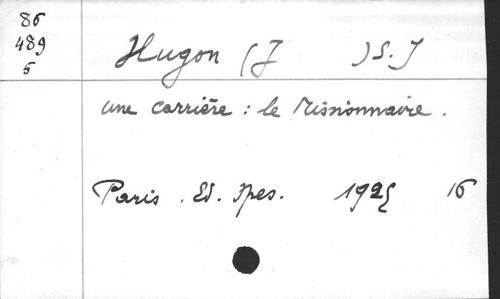 86
489
5
Hugon (J )S.J
une carrière : le Missionnaire .
Paris . Ed. Spes. 1925 16